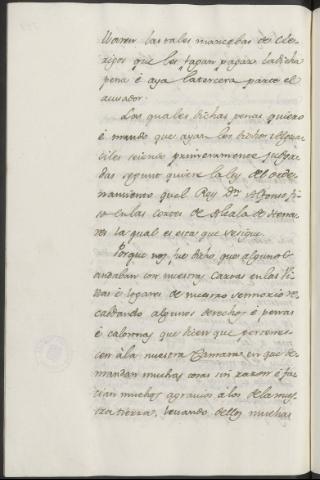 llaren las tales mancebas de Cle-
rigos que les fagan pagar la dicha
pena é aya la tercera parte el
acusador.
Las quales dichas penas quiero
é mando que ayan los dichos
siendo primeramente juzga-
das segunt quiere la ley del orde-
namiento quel Rey Dn Alfonso fi-
so en las cortes de Alcala de Hena-
res la qual es esta que se sigue.
Porque nos fue dicho, que algunos
andaban con nuestras Cartas en las Vi-
llas é logares de nuestro sennorio re-
cabdando algunos derechos é penas
é calonnas que dicen que pertenes-
cen á la nuestra Camara, en que de-
mandan muchas cosas sin razon é fa-
cian muchos agravios á los de la nues-
tra tierra, levando dellos muchas